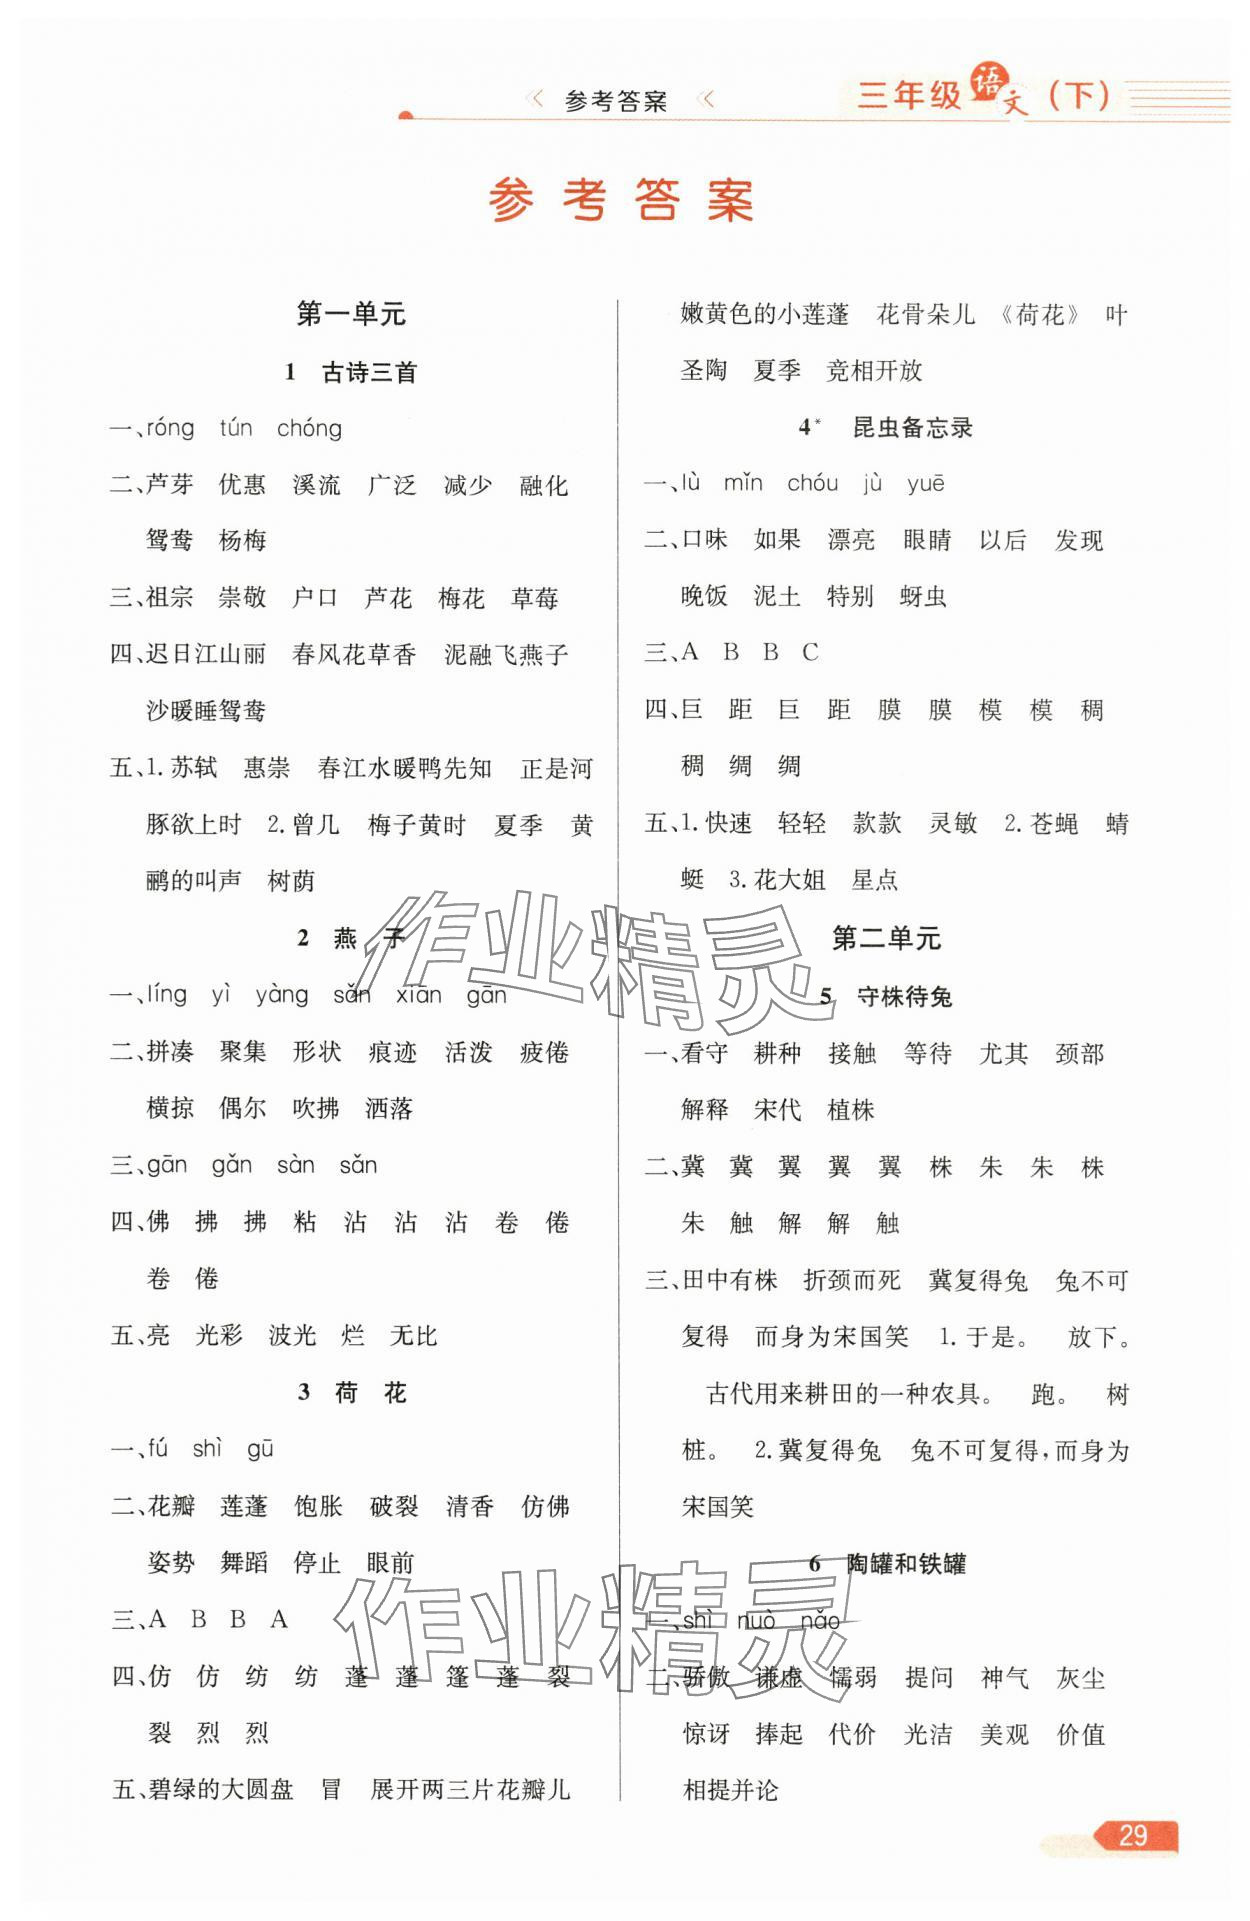 参考答案
三年级语文（下）
参考答案
第一单元
1 古诗三首
一、róng tún chóng
二、芦芽 优惠 溪流 广泛 减少 融化
鸳鸯 杨梅
三、祖宗 崇敬 户口 芦花 梅花 草莓
四、迟日江山丽 春风花草香 泥融飞燕子
沙暖睡鸳鸯
五、1.苏轼 惠崇 春江水暖鸭先知 正是河
豚欲上时 2.曾几 梅子黄时 夏季 黄
鹂的叫声 树荫
2 燕 子
一、líng yì yàng sǎn xiān gān
二、拼凑 聚集 形状 痕迹 活泼 疲倦
横掠 偶尔 吹拂 洒落
三、gān gǎn sàn sǎn
四、佛 拂 拂 粘 沾 沾 沾 卷 倦
卷 倦
五、亮 光彩 波光 烂 无比
3 荷 花
一、fú shì gū
二、花瓣 莲蓬 饱胀 破裂 清香 仿佛
姿势 舞蹈 停止 眼前
三、A B B A
四、仿 仿 纺 纺 蓬 蓬 篷 蓬 裂
裂 烈 烈
五、碧绿的大圆盘 冒 展开两三片花瓣儿
嫩黄色的小莲蓬 花骨朵儿 《荷花》 叶
圣陶 夏季 竞相开放
4* 昆虫备忘录
一、lù mǐn chóu jù yuē
二、口味 如果 漂亮 眼睛 以后 发现
晚饭 泥土 特别 蚜虫
三、A B B C
四、巨 距 巨 距 膜 膜 模 模 稠
稠 绸 绸
五、1.快速 轻轻 款款 灵敏 2.苍蝇 蜻
蜓 3.花大姐 星点
第二单元
5 守株待兔
一、看守 耕种 接触 等待 尤其 颈部
解释 宋代 植株
二、冀 冀 翼 翼 翼 株 朱 朱 株
朱 触 解 解 触
三、田中有株 折颈而死 冀复得兔 兔不可
复得 而身为宋国笑 1.于是。 放下。
古代用来耕田的一种农具。 跑。 树
桩。 2.冀复得兔 兔不可复得，而身为
宋国笑
6 陶罐和铁罐
一、shì nuò nǎo
二、骄傲 谦虚 懦弱 提问 神气 灰尘
惊讶 捧起 代价 光洁 美观 价值
相提并论
作业精灵
作业精灵
29